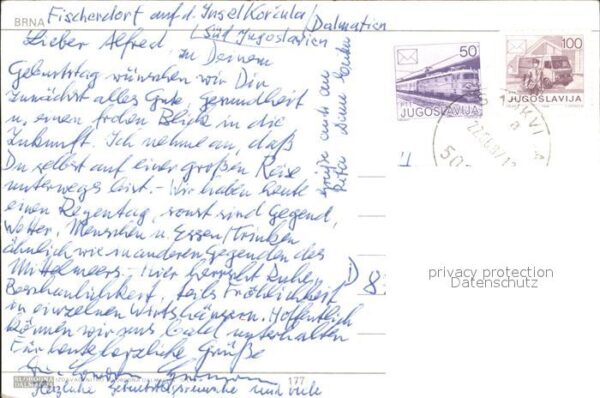 BRNA
Fischerdorf auf d. Insel Korčula/Dalmatien
(Süd Jugoslavien
Lieber Alfred, zu Deinem
Geburtstag wünschen wir Dir
zunächst alles Gute, Gesundheit
u. einen frohen Blick in die
Zukunft. Ich nehme an, daß
Du selbst auf einer großen Reise
unterwegs bist. - Wir haben heute
einen Regentag, sonst sind Gegend,
Wetter, Menschen u Essen/Trinken
ähnlich wie in anderen Gegenden des
Mittelmeers - hier herrscht Ruhe,
Beschaulichkeit, teils Fröhlichkeit
in einzelnen Wirtshäusern. Hoffentlich
können wir uns bald unterhalten
Für heute herzliche Grüße
Herzliche Geburtstagswünsche und viele
Grüße auch an
Rita Deine
50
JUGOSLAVIJA
100
JUGOSLAVIJA
D 8
privacy protection
Datenschutz
177